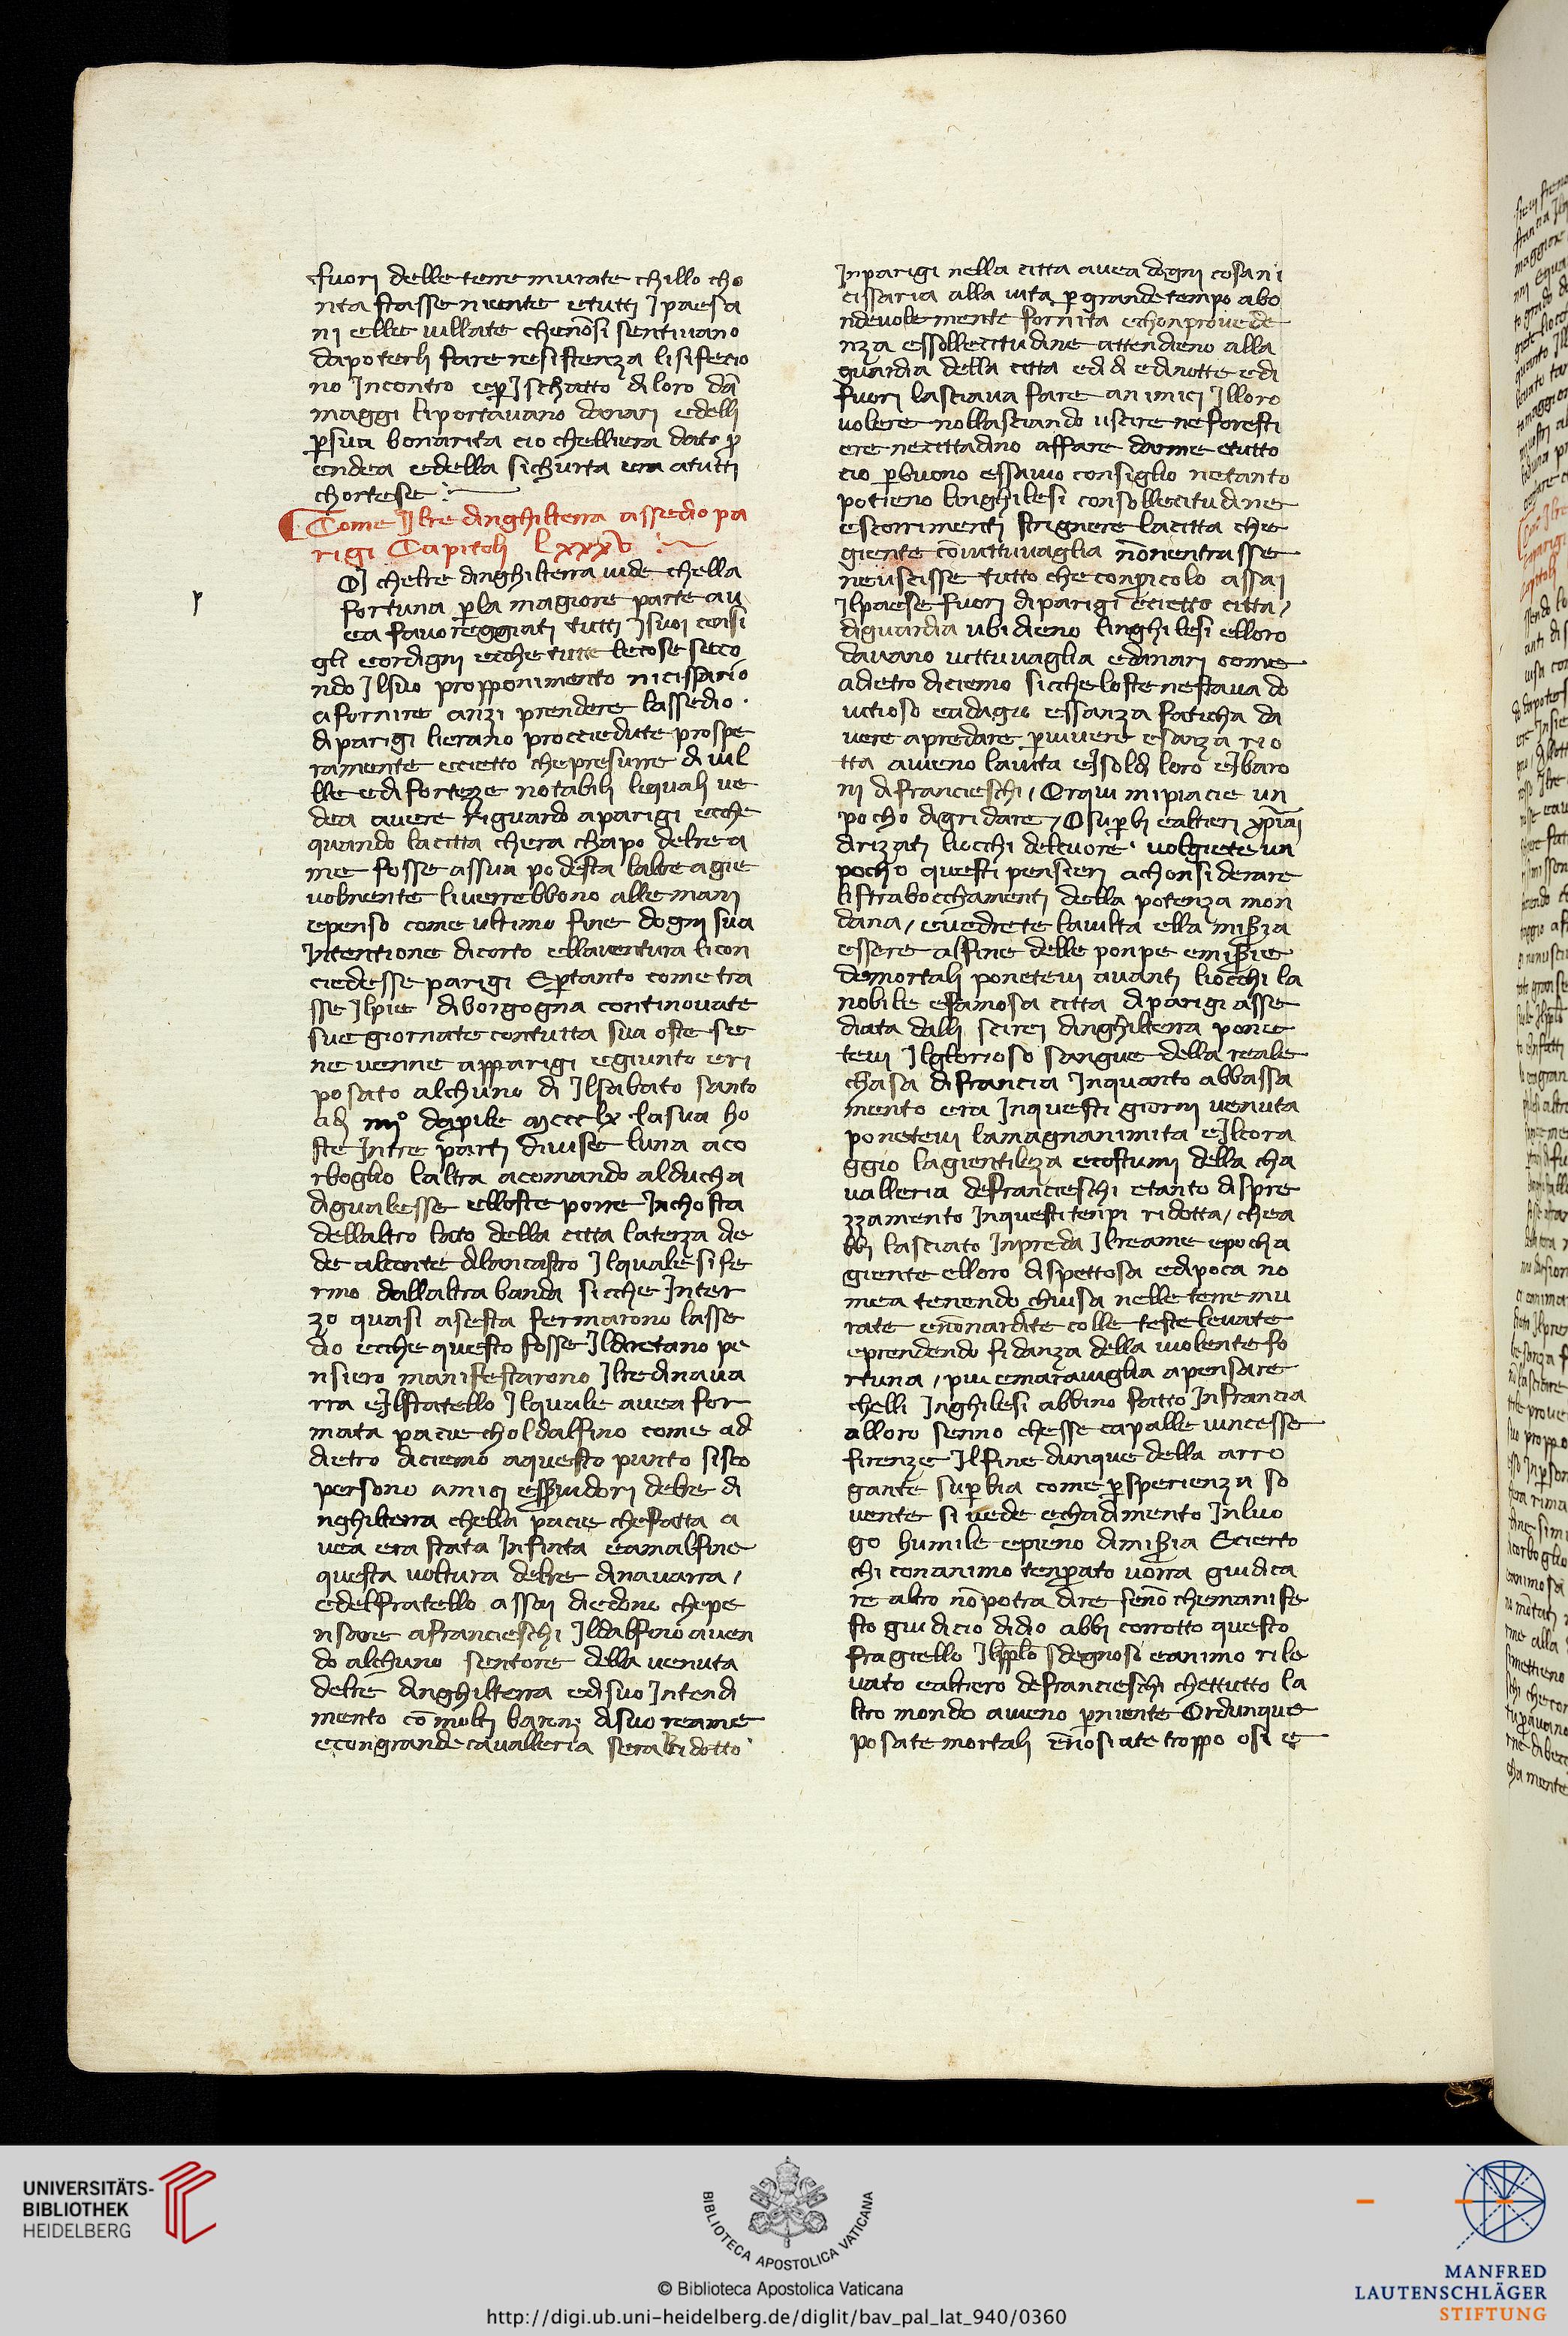 fuori delle terre murate chillo cho
nta stasse niente etutti J paesa
ni elle uillate chenōsi sentiuano
dapoterli fare resistenza lisifecio
no Jncontro ep̱ Jschatto di loro dā
maggi liportauano danari edelli
p̱sua bonarita cio chelliera dato p̱
endea edella sichurta era atutti
chortese
Come Jlre dinghilterra assedio pa
rigi Capitoli lxxxv
OJ chelre dinghilterra uide chella
fortuna p̱la magiore parte au
ea fauoreggiati tutti Jsuoi consi
gli eordigni ecche tutte lecose seco
ndo Jlsuo propponimento nicissario
afornire anzi prendere lassedio
di parigi lierano proccedute prospe
ramente eccietto chepresurre di uil
lle edi forteze notabili liquali ue
dea auere Riguardo aparigi ecche
quando lacitta chera chapo delrea
me fosse assua podesta laltre agie
uolmente liuerrebbono alle mani
epenso come ultimo fine dogni sua
Jntentione dicorto ellauentura licon
ciedesse parigi Ep̱tanto come tra
sse Jlpie di borgogna continouate
sue giornate contutta sua oste se
ne uenne apparigi egiunto eri
posato alchuno di Jlsabato santo
adj iiijº dap̱ile mccclx lasua ho
ste Jntre parti diuise luna aco
rboglio laltra acomando alducha
digualesse elloste porre Jnchosta
dellaltro lato della citta laterza die
de alconte dilancastro Jlquale si fe
rmo dallaltra banda sicche Jnter
zo quasi asesta fermarono lasse
dio ecche questo fosse Jldiretano pe
nsiero manifestarono Jlredinaua
rra eJlfratello Jlquale auea for
mata pacie choldalfino come ad
dietro diciemo aquesto punto sisco
persono amici esseruidori delre di
nghilterra chella pacie chefatta a
uea era stata Jnfinta eamalfine
questa uoltura delre dinauarra /
edelfratello assai diedono chepe
nsare afrancieschi Jldalfino auen
do alchuno sentore della uenuta
delre dinghilterra edisuo Jntendi
mento cō molti baroni disuo reame
econgrande caualleria serabridotto
Jnparigi nella citta auea dogni cosani
cissaria alla uita p̱grande tempo abo
ndeuole mente fornita echonprouede
nza essollecitudine attendieno alla
guardia della citta edi di edinotte edi
fuori lasciaua fare animici Jlloro
uolere nollasciando uscire ne foresti
ere necittadino affare darme etutto
cio p̱buono essauio consiglio netanto
potieno linghilesi consollecitudine
escorrimenti strignere lacitta che
giente cōuittuuaglia nōnentrasse
neuscisse tutto checonpicolo assai
Jlpaese fuori di parigi eccietto citta /
diguardia ubidieno linghilesi elloro
dauano uittuuaglia edinari come
adietro diciemo sicche loste nestaua do
uitioso eadagio essanza faticha da
uere apredare p̱uiuere esanza rio
tta aueno lauita eJsoldi loro eJbaro
ni di francieschi / Orqui mipiacie un
pocho digridare / O sup̱bi ealtieri xp̄iani
dirizati liocchi delcuore uolgiete un
pocho questi pensieri achonsiderare
listrabocchamenti della potenza mon
dana / euedrete lauilta ella mis̄ia
essere alfine delle ponpe emis̄ie
demortali poneteui auanti liocchi la
nobile efamosa citta di parigi asse
diata dalli scirei dinghilterra pone
teui Jlglorioso sangue della reale
chasa di francia Jnquanto abbassa
mento era Jnquesti giorni uenuta
poneteui lamagnanimita eJlcora
ggio lagientileza ecostumi della cha
ualleria defrancieschi etanto dispre
zzamento Jnquesti tenpi ridotta / chea
bbi lasciato Jnpreda Jlreame epocha
giente elloro dispettosa edipoca no
mea tenendo chiusa nelle terre mu
rate enōnardite colle teste leuate
eprendendo fidanza della uiolente fo
rtuna / piu emarauiglia apensare
chelli Jnghilesi abbino fatto Jnfrancia
alloro senno chesse capalle uincesse
firenze Jlfine dunque della arro
gante sup̱bia come p̱sperienza so
uente si uede echadimento Jnluo
go humile epieno dimis̄ia Ecierto
chi conanimo tenp̱ato uorra giudica
re altro nō potra dire senō chemanife
sto giudicio didio abbi corrotto questo
fragiello Jlpplō sdegnosi eanimo rile
uato ealtiero defrancieschi chettutto la
ltro mondo aueno p̱niente Ordunque
posate mortali enōsiate troppo osi e
UNIVERSITÄTS-
BIBLIOTHEK
HEIDELBERG
BIBLIOTECA APOSTOLICA VATICANA
© Biblioteca Apostolica Vaticana
http://digi.ub.uni-heidelberg.de/diglit/bav_pal_lat_940/0360
MANFRED
LAUTENSCHLÄGER
STIFTUNG